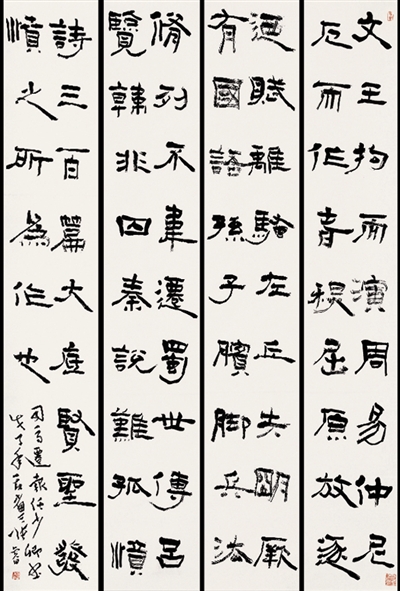 文王拘而演周易仲尼
厄而作春秋屈原放逐
迺賦離騷左丘失明厥
有國語孫子臏腳兵法
脩列不韋遷蜀世傳呂
覽韓非囚秦說難孤憤
詩三百篇大底賢聖發
憤之所為作也
司馬遷報任少卿書